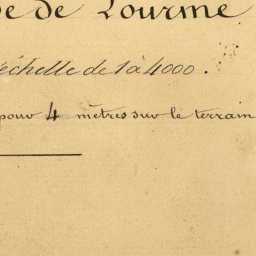 de Lourme
échelle de 1 à 4000.
pour 4 mètres sur le terrain